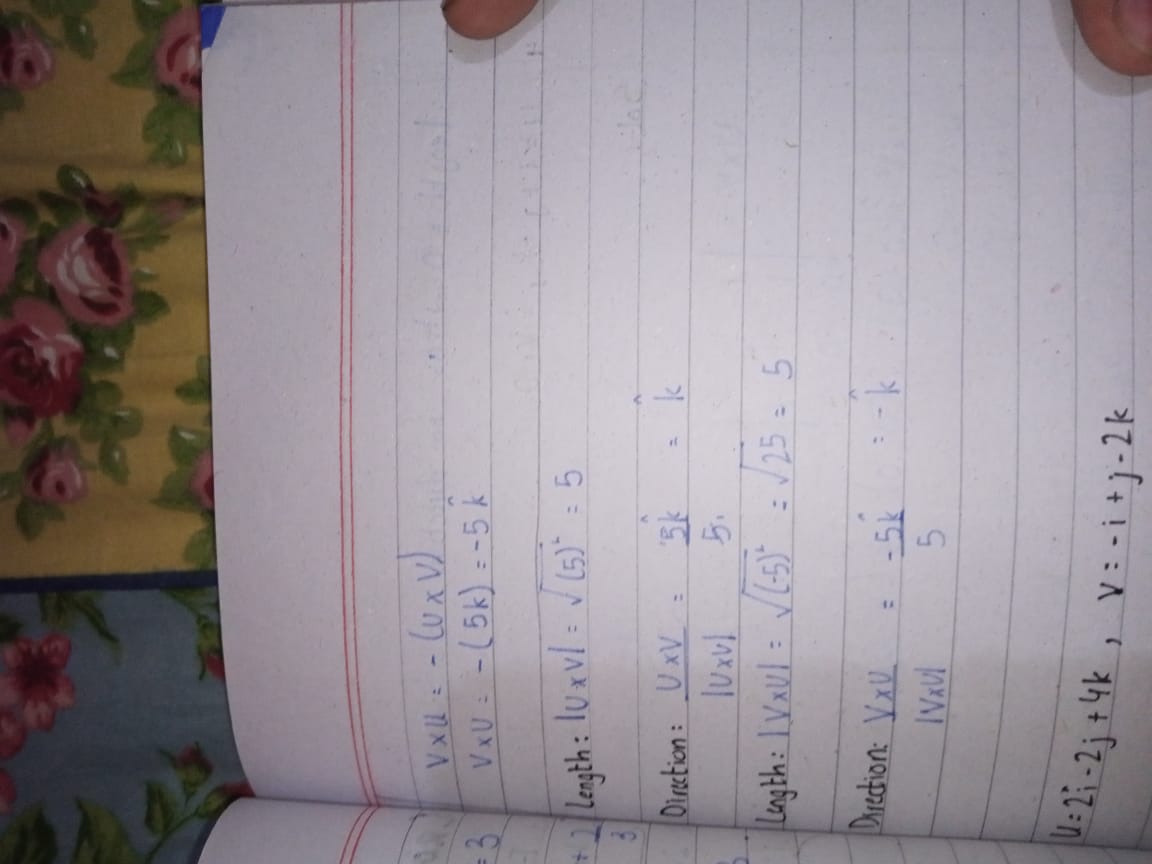 V×U = - (U×V)
V×U = -(5k) = -5k̂
Length: |U×V| = √(5)² = 5
Direction: U×V = 5k̂ = k̂
|U×V| 5
Length: |V×U| = √(-5)² = √25 = 5
Direction: V×U = -5k̂ = -k̂
|V×U| 5
U=2i-2j+4k , V=-i+j-2k
=3
+ 2
3